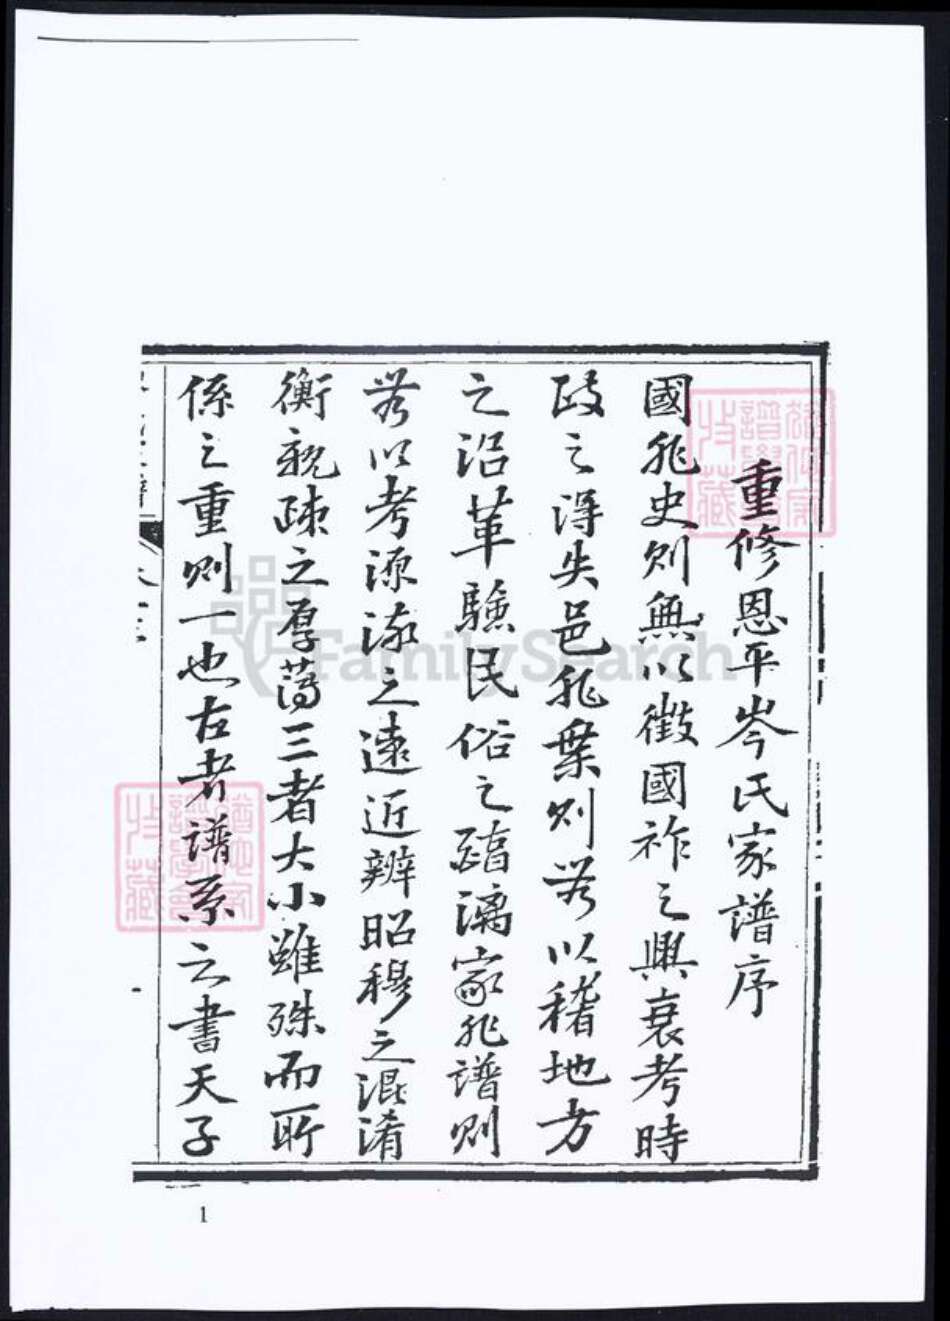 重修恩平岑氏家譜序
國非史則無以徵國祚之興衰考時
政之得失邑非乘則無以稽地方
之沿革驗民俗之醇漓家非譜則
無以考源流之遠近辨昭穆之混淆
衡親疎之厚薄三者大小雖殊而所
係之重則一也古者譜系之書天子
FamilySearch
1